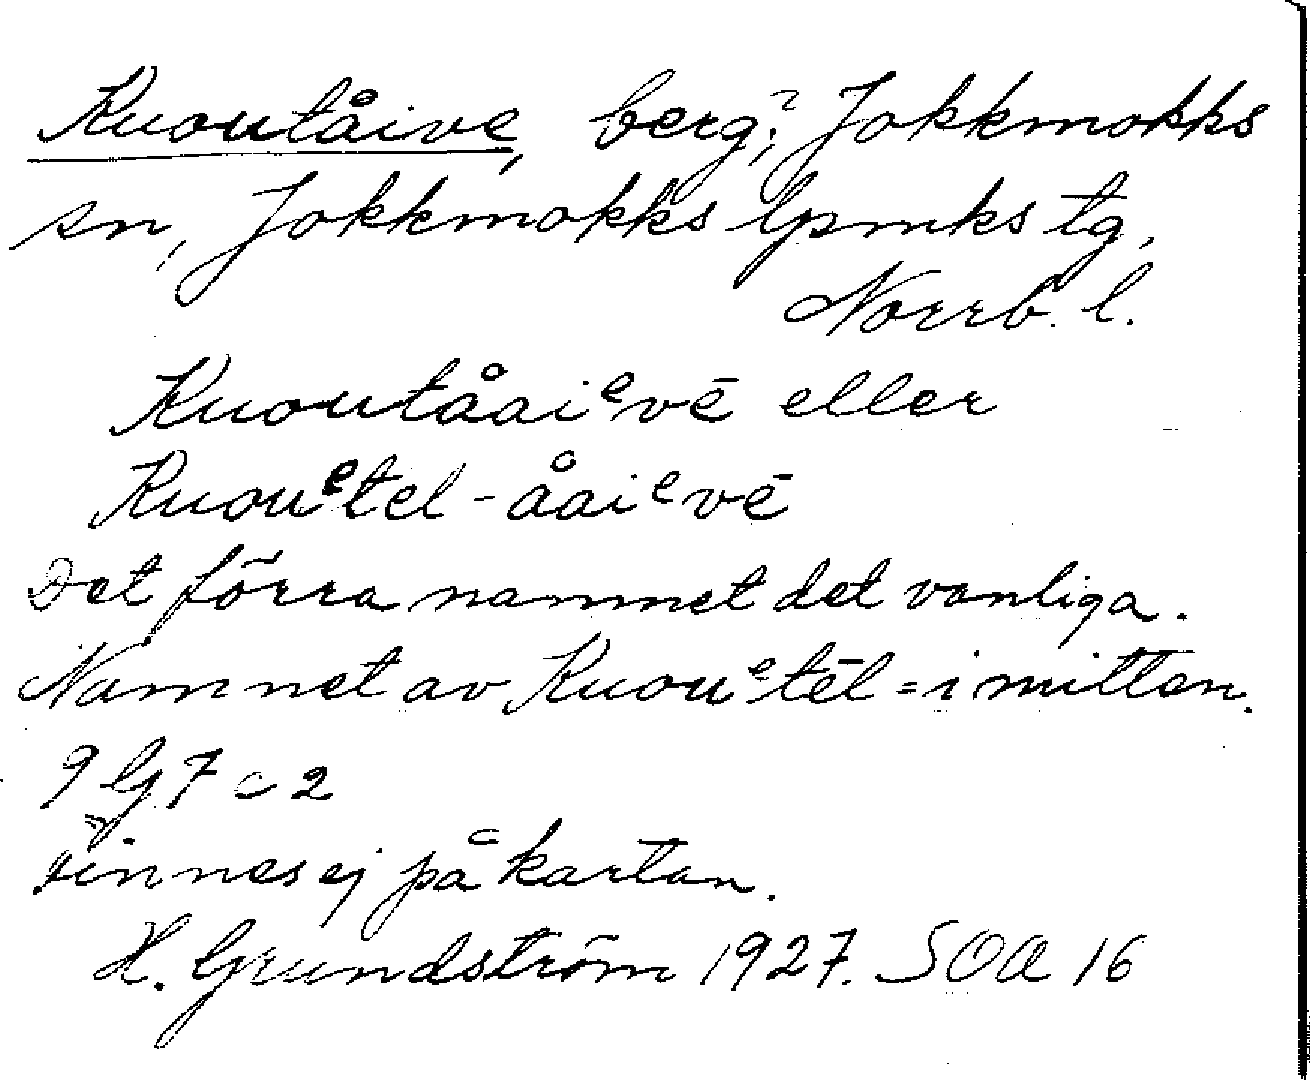 Kuoutåive, berg?, Jokkmokks
sn, Jokkmokks lpmks tg,
Norrb. l.
Kuoutåaiᵉvē eller
Kuouᵉtel-åaiᵉvē
Det förra namnet det vanliga.
Namnet av Kuouᵉtēl = i mitten.
9 G 7 c 2
Finnes ej på kartan.
H. Grundström 1927. SOA 16